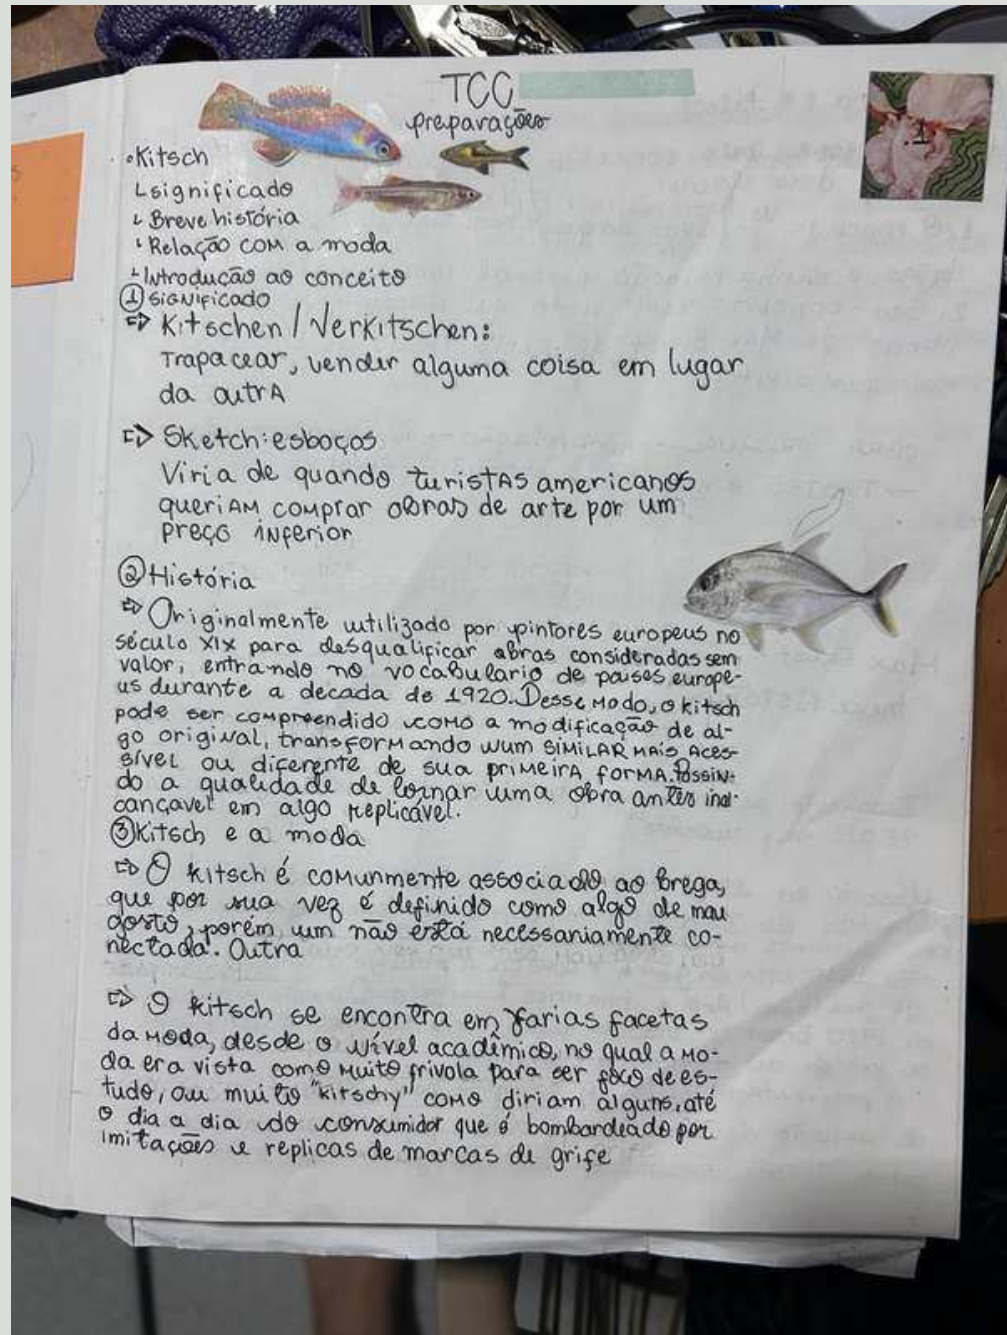 TCC
preparações
•Kitsch
significado
Breve história
Relação com a moda
Introdução ao conceito
① Significado
⇨ Kitschen / Verkitschen:
Trapacear, vender alguma coisa em lugar
da outra
⇨ Sketch: esboços
Viria de quando turistas americanos
queriam comprar obras de arte por um
preço inferior
② História
⇨ Originalmente utilizado por pintores europeus no
século XIX para desqualificar obras consideradas sem
valor, entrando no vocabulario de países europe-
us durante a decada de 1920. Desse modo, o kitsch
pode ser compreendido como a modificação de al-
go original, transformando num similar mais aces-
sível ou diferente de sua primeira forma. Possin-
do a qualidade de tornar uma obra antes inal-
cançavel em algo replicável.
③ Kitsch e a moda
⇨ O kitsch é comunmente associado ao brega,
que por sua vez é definido como algo de mau
gosto, porém um não está necessariamente co-
nectada. Outra
⇨ O kitsch se encontra em varias facetas
da moda, desde o nível acadêmico, no qual a mo-
da era vista como muito frivola para ser foco de es-
tudo, ou muito "kitschy" como diriam alguns, até
o dia a dia do consumidor que é bombardeado por
imitações e replicas de marcas de grife